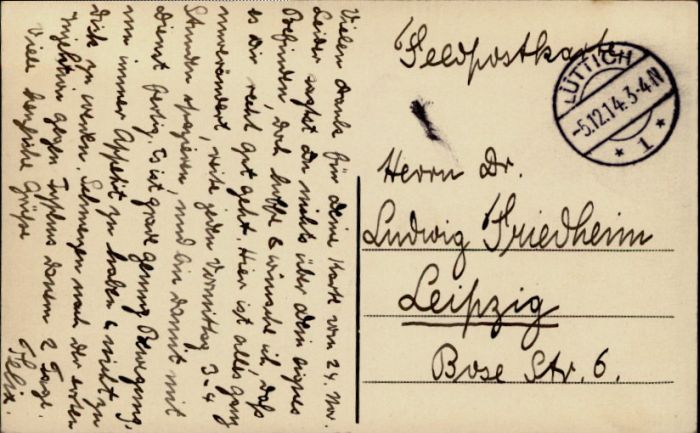 Vielen Dank für Deine Karte von 24. Nov.
Leider sagst Du nichts über Dein eignes
Befinden, doch hoffe & wünsche ich, daß
es Dir recht gut geht. Hier ist alles ganz
unverändert, reite jeden Vormittag 3-4
Stunden spazieren, und bin damit mit
Dienst fertig. Es ist grade genug Bewegung,
um immer Appetit zu haben & nicht zu
dick zu werden. Schmerzen nach der ersten
Injektion gegen Typhus dauern 2 Tage.
Viele herzliche Grüße
Felix.
Feldpostkarte
LÜTTICH
-5.12.14.3-4N
* 1 *
Herrn Dr.
Ludwig Friedheim
Leipzig
Bose Str. 6.